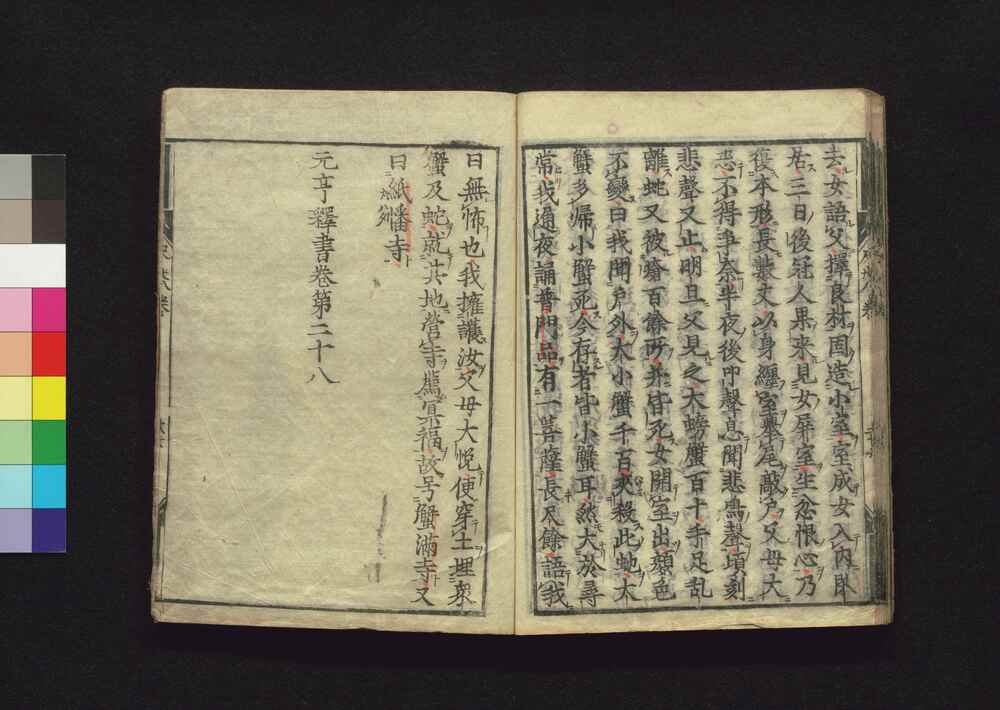 去女語父擇良材固造小室室成女入内卽
居三日後冠人果来見女屏室生忿恨心乃
復本形長數丈以身纒室舉尾敲戶父母大
恐不得爭奈半夜後叩聲息聞悲鳴聲頃刻
悲聲又止明旦父見之大螃蟹百十手足亂
離蛇又被瘡百餘所并皆死女開室出顔色
不變曰我聞戶外大小蟹千百夾殺此虵大
蟹多歸小蟹死今存者皆小蟹耳然大於尋
常我通夜誦普門品有一菩薩長尺餘語我
曰無怖也我擁護汝父母大悅使穿土埋衆
蟹及蛇就其地營寺薦冥福故号蟹滿寺又
曰紙幡寺
元亨釋書卷第二十八